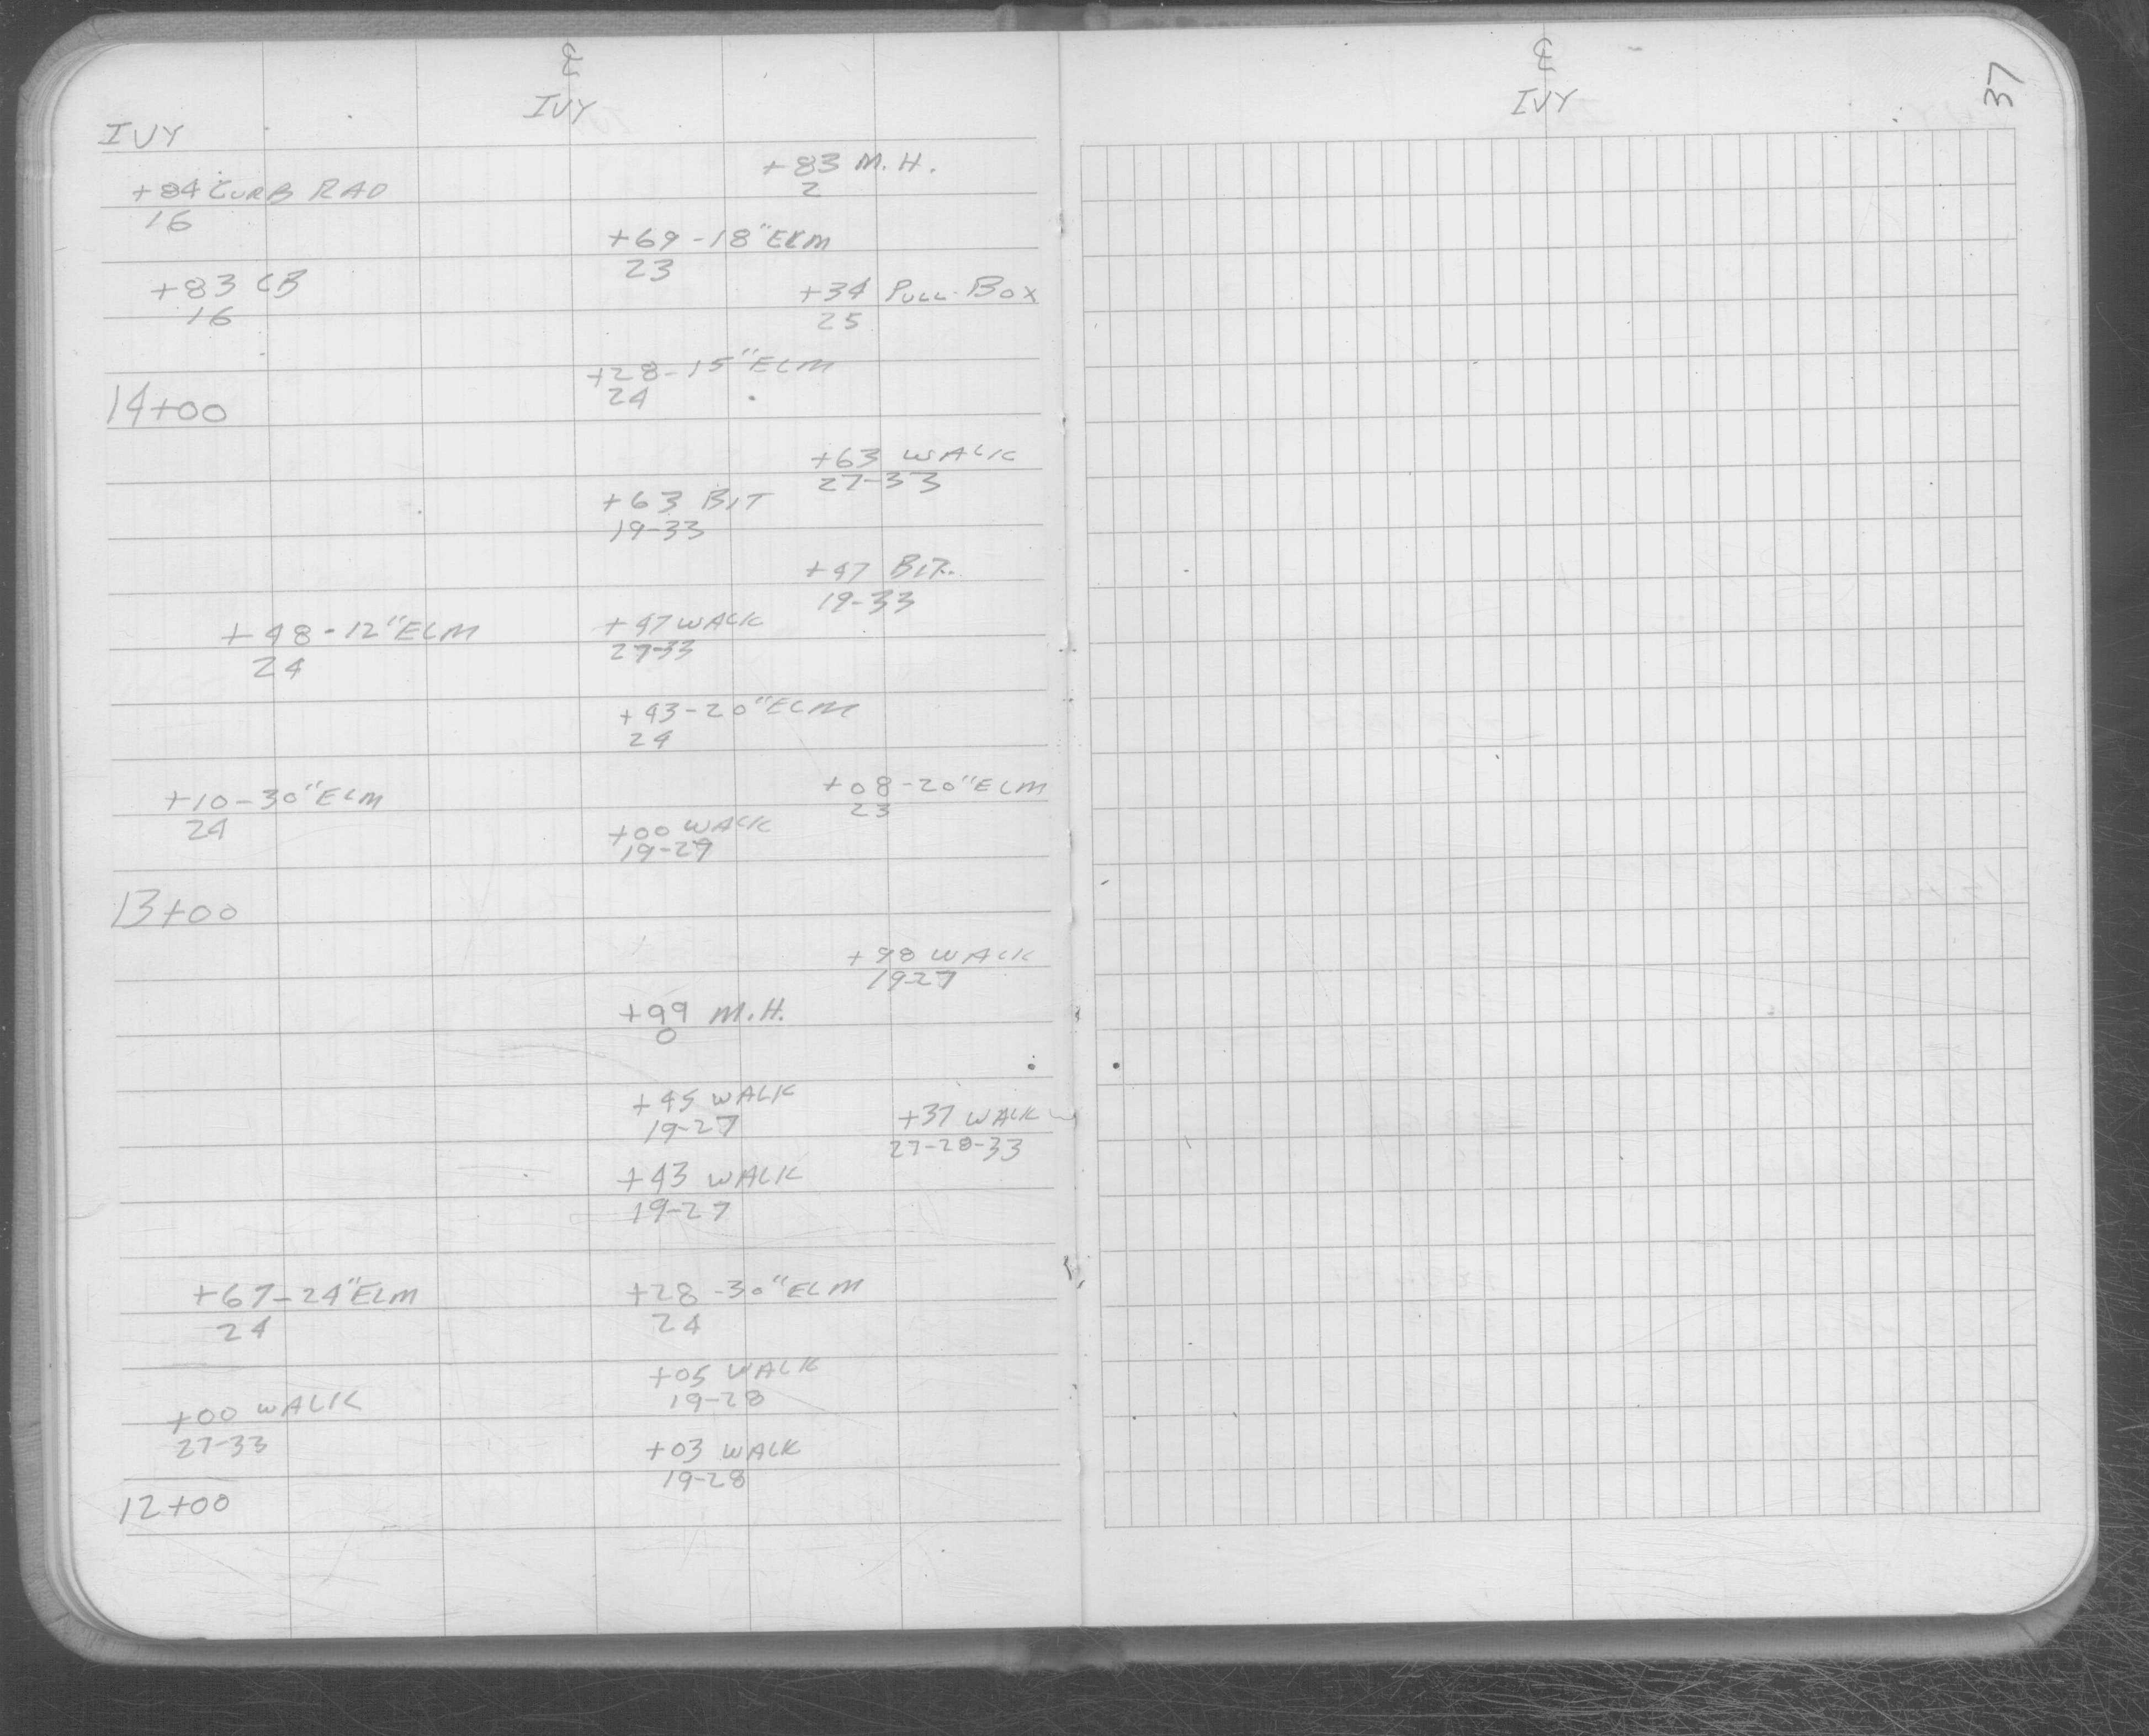 ℄
IVY
IVY
+84 CURB RAD
16
+83 M.H.
2
+69-18"ELM
23
+83 CB
16
+34 PULL-BOX
25
+28-15"ELM
24
14+00
+63 WALK
27-33
+63 BIT
19-33
+47 BIT.
19-33
+48-12"ELM
24
+47 WALK
27-33
+43-20"ELM
24
+10-30"ELM
24
+08-20"ELM
23
+00 WALK
19-27
13+00
+98 WALK
19-27
+99 M.H.
0
+45 WALK
19-27
+37 WALK
27-28-33
+43 WALK
19-27
+67-24"ELM
24
+28-30"ELM
24
+05 WALK
19-28
+00 WALK
27-33
+03 WALK
19-28
12+00
℄
IVY
37